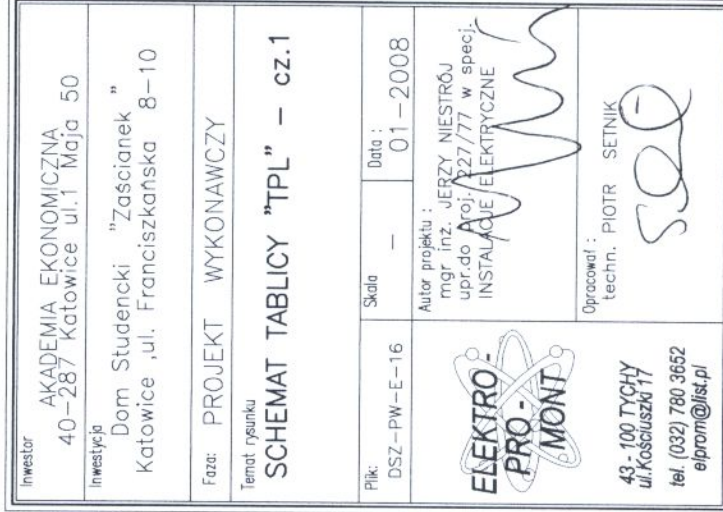 Inwestor
AKADEMIA EKONOMICZNA
40-287 Katowice ul.1 Maja 50
Inwestycja
Dom Studencki "Zaścianek"
Katowice ,ul. Franciszkańska 8-10
Faza: PROJEKT WYKONAWCZY
Temat rysunku
SCHEMAT TABLICY "TPL" - cz.1
Plik:
DSZ-PW-E-16
Skala
-
Data :
01-2008
ELEKTRO-
PRO-
MONT
43 - 100 TYCHY
ul.Kościuszki 17
tel. (032) 780 3652
elprom@list.pl
Autor projektu :
mgr inż. JERZY NIESTRÓJ
upr.do proj. 227/77 w specj.
INSTALACJE ELEKTRYCZNE
Opracował :
techn. PIOTR SETNIK